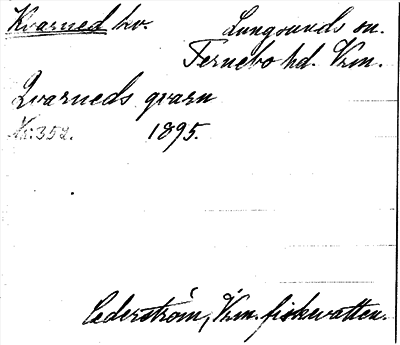 Kvarned kv. Lungsunds sn.
Fernebo hd. Vrm.
Qvarneds qvarn
N:352. 1895.
Cederström, Vrm. fiskevatten.